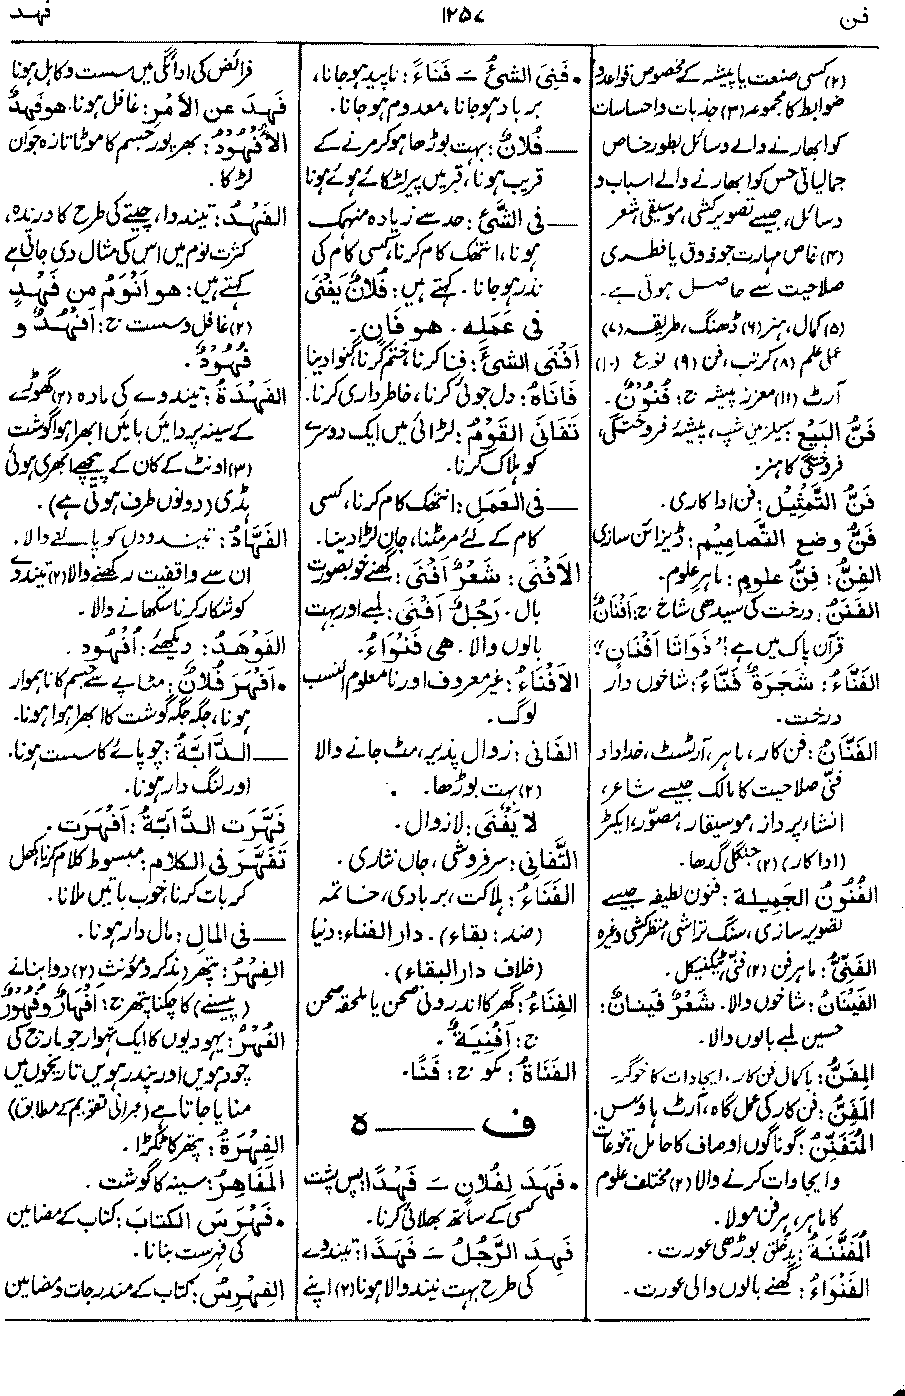 فن
۱۲۵۷
فہد
(۲) کسی صنعت یا پیشہ کے مخصوص قواعد و
ضوابط کا مجموعہ (۳) جذبات و احساسات
کو ابھارنے والے وسائل بطور خاص
جمالیاتی حس کو ابھارنے والے اسباب و
وسائل، جیسے تصویر کشی، موسیقی، شعر
(۴) خاص مہارت جو ذوق یا فطری
صلاحیت سے حاصل ہوتی ہے۔
(۵) کمال، ہنر (۶) ڈھنگ، طریقہ (۷)
عملی علم (۸) کرتب، فن (۹) نوع (۱۰)
آرٹ (۱۱) معزز پیشہ ج: فُنُوْنٌ۔
فَنُّ البَيْعِ: سیلزمین شپ، پیشۂ فروختگی،
فروختگی کا ہنر۔
فَنُّ التَّمْثِيْلِ: فن اداکاری۔
فَنُّ وضعِ التَّصاميم: ڈیزائن سازی
الفِنُّ: فِنُّ علومٍ: ماہر علوم۔
الفَنَنُ: درخت کی سیدھی شاخ ج: اَفْنَانٌ
قرآن پاک میں ہے: "ذَوَاتَا اَفْنَانٍ"
الفَنَّاءُ: شَجَرَةٌ فَنَّاءُ: شاخوں دار
درخت۔
الفَنَّانُ: فن کار، ماہر، آرٹسٹ، خداداد
فنی صلاحیت کا مالک جیسے شاعر،
انشاء پرداز، موسیقار، مصوّر، ایکٹر
(اداکار) (۲) جنگلی گدھا۔
الفُنُونُ الجَمِيلة: فنون لطیفہ جیسے
تصویر سازی، سنگ تراشی، منظر کشی وغیرہ
الفَنِّيُّ: ماہر فن (۲) فنّی، ٹیکنیکل۔
الفَيْنَانُ: شاخوں والا۔ شَعْرٌ فَينانٌ:
حسین لمبے بالوں والا۔
المِفَنُّ: باکمال فن کار، ایجادات کا خوگر۔
المَفَنُّ: فن کار کی عمل گاہ، آرٹ ہاؤس۔
المُتَفَنِّنُ: گوناگوں اوصاف کا حامل، تنوعات
و ایجادات کرنے والا (۲) مختلف علوم
کا ماہر، ہر فن مولا۔
المُفَنَّنَةُ: بدخلق بوڑھی عورت۔
الفَنْوَاءُ: گھنے بالوں والی عورت۔
• فَنِیَ الشیُٔ ــَ فَنَاءً: ناپید ہو جانا،
برباد ہو جانا، معدوم ہو جانا۔
ــــ فُلانٌ: بہت بوڑھا ہو کر مرنے کے
قریب ہونا، قبر میں پیر لٹکائے ہوئے ہونا
ــــ فی الشَّیْءِ: حد سے زیادہ منہمک
ہونا، انتھک کام کرنا، کسی کام کی
نذر ہو جانا۔ کہتے ہیں: فُلانٌ یَفْنَی
فی عَمَلِه۔ هو فَانٍ۔
اَفْنَی الشیَٔ: فنا کرنا، ختم کرنا، گنوا دینا
فَانَاهُ: دل جوئی کرنا، خاطر داری کرنا۔
تَفَانَی القَوْمُ: لڑائی میں ایک دوسرے
کو ہلاک کرنا۔
ــــ فی العَمَلِ: انتھک کام کرنا، کسی
کام کے لئے مر مٹنا، جان لڑا دینا۔
الاَفْنَی: شَعْرٌ اَفْنَی: گھنے خوبصورت
بال۔ رَجُلٌ اَفْنَی: لمبے اور بہت
بالوں والا۔ هی فَنْوَاءُ۔
الاَفْنَاءُ: غیر معروف اور نامعلوم النسب
لوگ۔
الفَانی: زوال پذیر، مٹ جانے والا
(۲) بہت بوڑھا۔
لا یَفْنَی: لازوال۔
التَّفَانِی: سرفروشی، جاں نثاری۔
الفَنَاءُ: ہلاکت، بربادی، خاتمہ
(ضد: بقاء)۔ دار الفناء: دنیا
(خلاف دار البقاء)۔
الفِنَاءُ: گھر کا اندرونی صحن یا ملحقہ صحن
ج: اَفْنِيَةٌ۔
الفَنَاةُ: مکو ج: فَنًا۔
ف ــــــــ ہ
• فَهَدَ لِفُلانٍ ــَ فَهْدًا: پس پشت
کسی کے ساتھ بھلائی کرنا۔
فَهِدَ الرَّجُلُ ــَ فَهَدًا: تیندوے
کی طرح بہت نیند والا ہونا (۲) اپنے
فرائض کی ادائگی میں سست و کاہل ہونا
فَهِدَ عن الاَمْرِ: غافل ہونا۔ هو فَهِدٌ
الاُفْهُوْدُ: بھرپور جسم کا موٹا تازہ جوان
لڑکا۔
الفَهْدُ: تیندوا، چیتے کی طرح کا درندہ،
کثرت نوم میں اس کی مثال دی جاتی ہے
کہتے ہیں: هو اَنْوَمُ مِن فَهْدٍ
(۲) غافل و سست ج: اَفْهُدٌ و
فُهُوْدٌ۔
الفَهْدَةُ: تیندوے کی مادہ (۲) گھوڑے
کے سینہ پر دائیں بائیں ابھرا ہوا گوشت
(۳) اونٹ کے کان کے پیچھے ابھری ہوئی
ہڈی (دونوں طرف ہوتی ہے)۔
الفَهَّادُ: تیندووں کو پالنے والا۔
ان سے واقفیت رکھنے والا (۲) تیندوے
کو شکار کرنا سکھانے والا۔
الفَوْهَدُ: دیکھئے: اُفْهُود۔
• اَفْهَرَ فُلانٌ: مٹاپے سے جسم کا ناہموار
ہونا، جگہ جگہ گوشت کا ابھرا ہوا ہونا۔
ــــ الدَّابَّةُ: چوپائے کا سست ہونا۔
اور لنگ دار ہونا۔
فَهَّرَتِ الدَّابَّةُ: اَفْهَرَت۔
تَفَهَّرَ فی الکلامِ: مبسوط کلام کرنا، کھل
کر بات کرنا، خوب باتیں ملانا۔
ــــ فی المالِ: مال دار ہونا۔
الفِهْرُ: پتھر (مذکر و مؤنث) (۲) دوا بنانے
(پیسنے) کا چکنا پتھر ج: اَفْهَارٌ و فُهُوْرٌ
الفُهْرُ: یہودیوں کا ایک تہوار جو مارچ کی
چودھویں اور پندرہویں تاریخوں میں
منایا جاتا ہے (عبرانی تقویم کے مطابق)
الفِهْرَةُ: پتھر کا ٹکڑا۔
المَفَاهِرُ: سینہ کا گوشت۔
• فَهْرَسَ الکتابَ: کتاب کے مضامین
کی فہرست بنانا۔
الفِهْرِسُ: کتاب کے مندرجات و مضامین